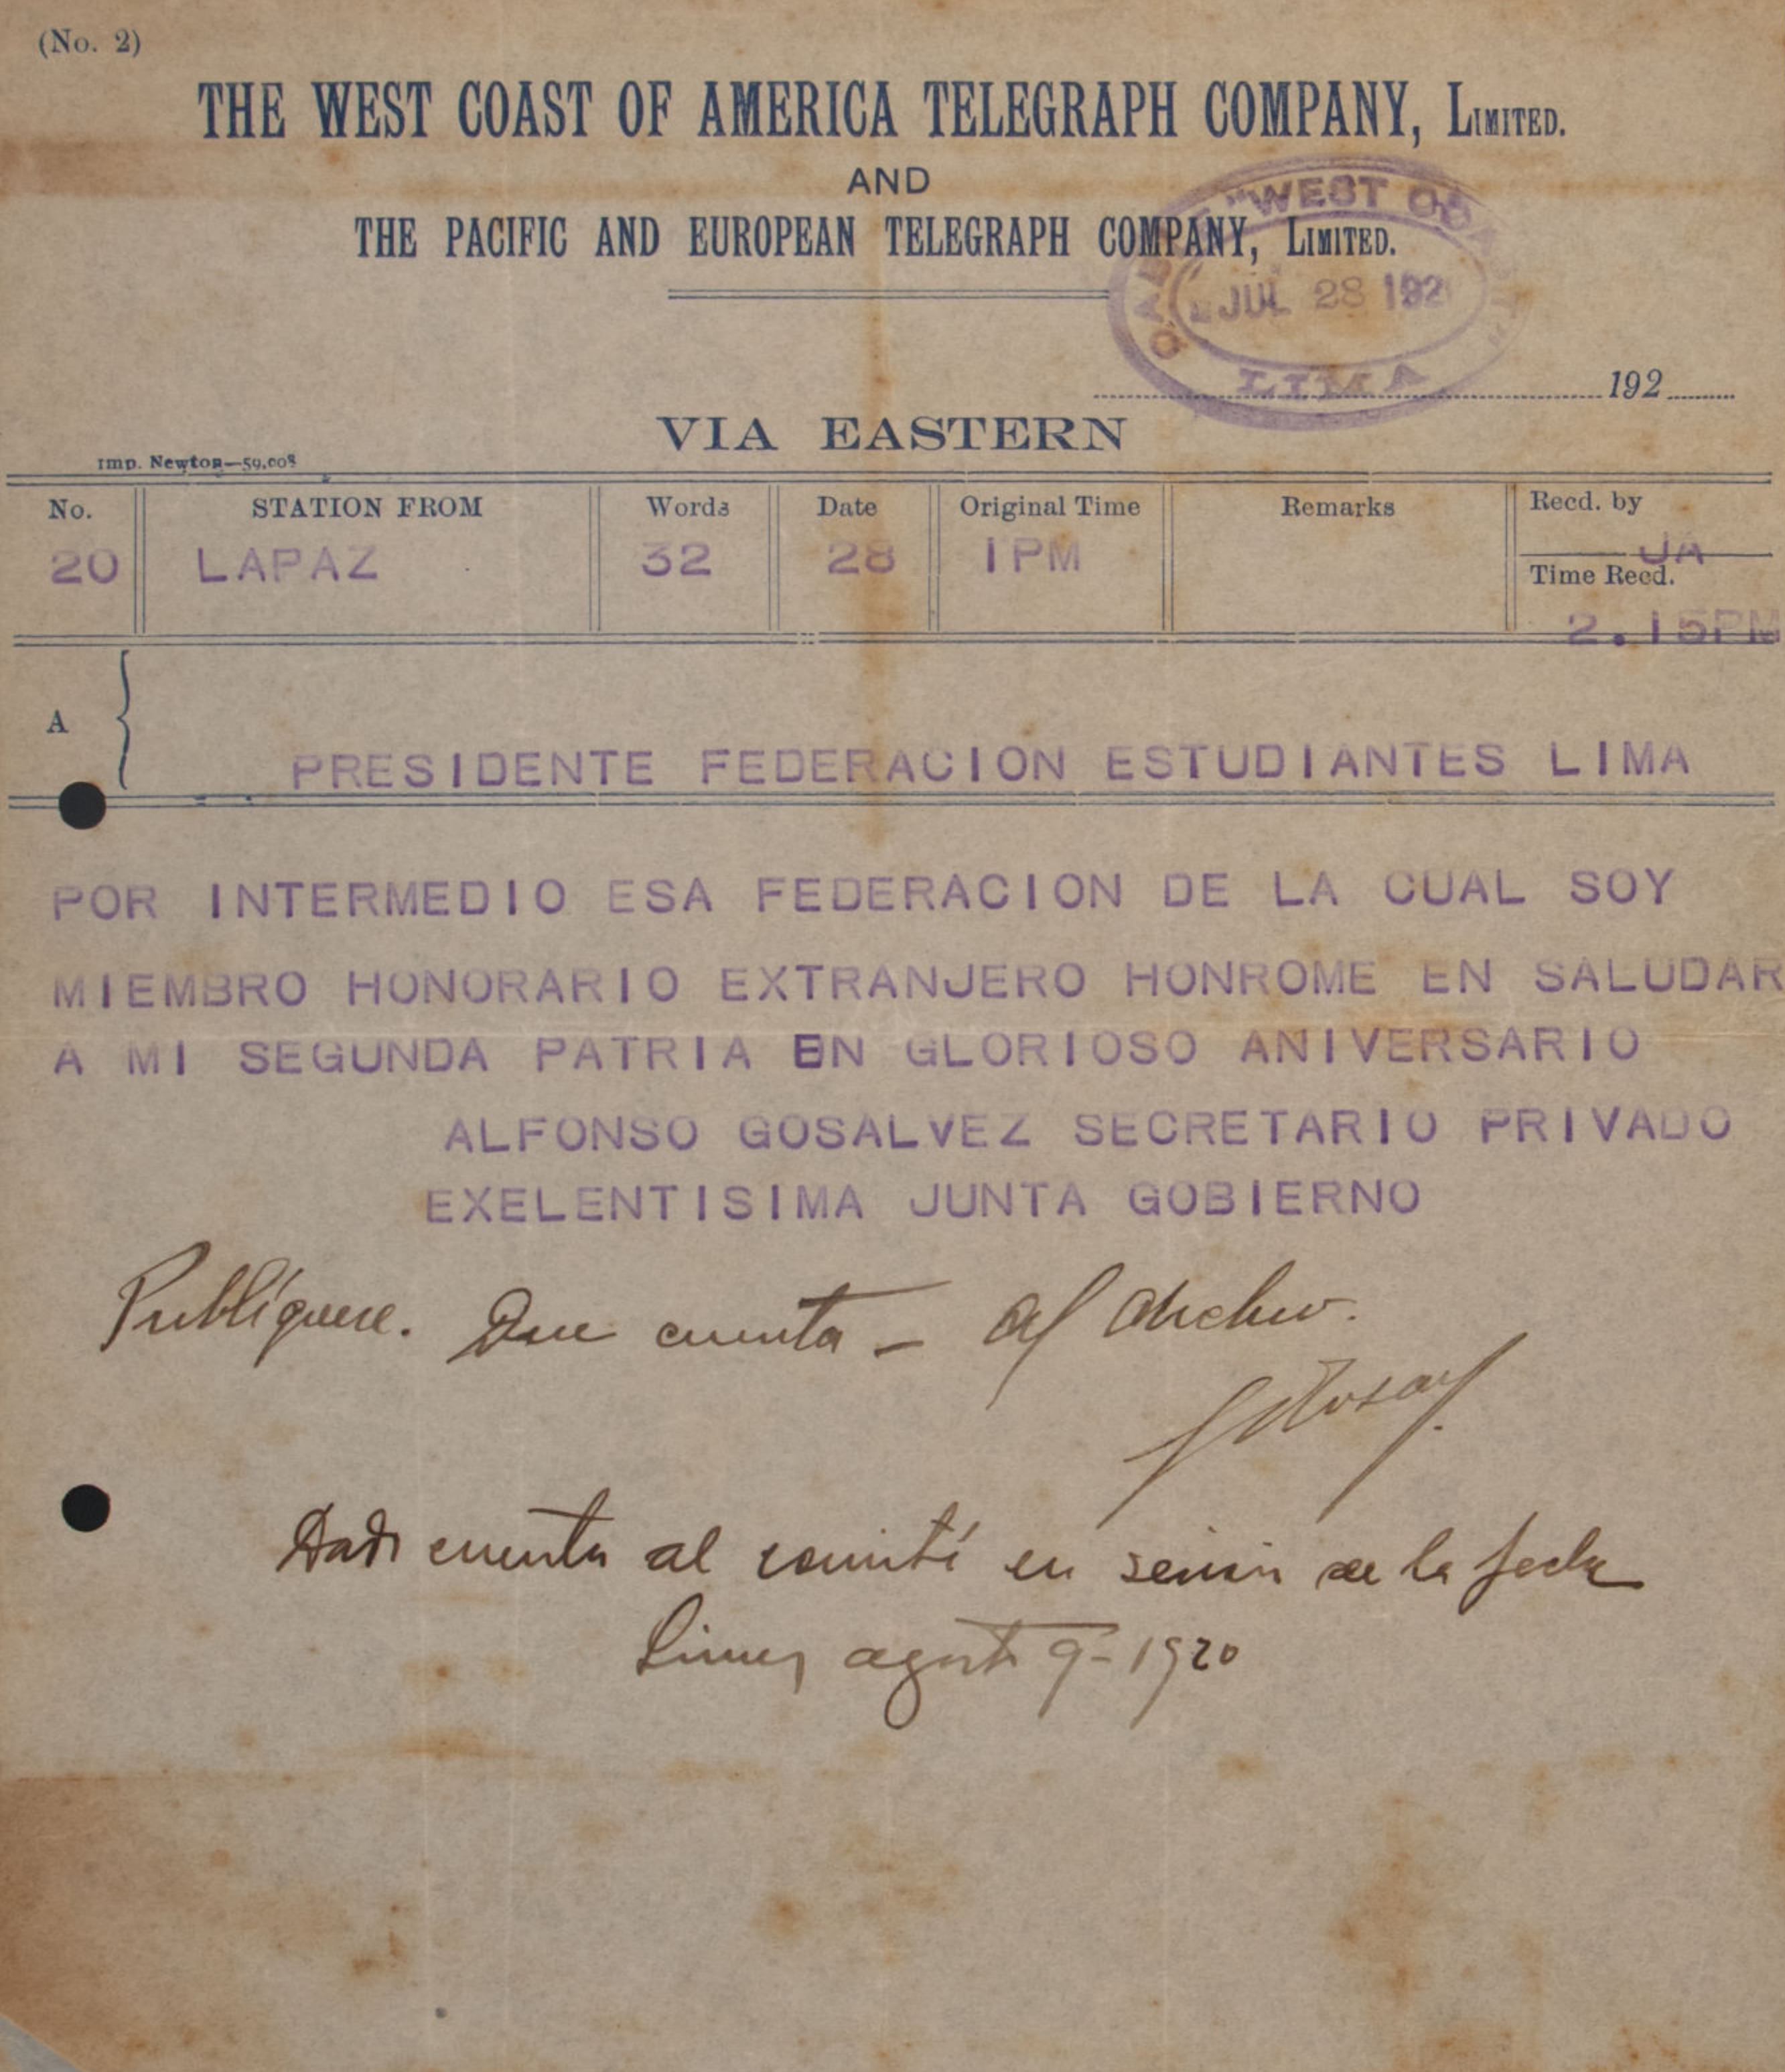 (No. 2)
THE WEST COAST OF AMERICA TELEGRAPH COMPANY, LIMITED.
AND
THE PACIFIC AND EUROPEAN TELEGRAPH COMPANY, LIMITED.
"WEST COAST"
JUL 28 192
LIMA
192
VIA EASTERN
Imp. Newton—59.008
No. STATION FROM Words Date Original Time Remarks Recd. by
20 LAPAZ 32 28 1PM JA
Time Recd.
2.15PM
A
PRESIDENTE FEDERACION ESTUDIANTES LIMA
POR INTERMEDIO ESA FEDERACION DE LA CUAL SOY
MIEMBRO HONORARIO EXTRANJERO HONROME EN SALUDAR
A MI SEGUNDA PATRIA EN GLORIOSO ANIVERSARIO
ALFONSO GOSALVEZ SECRETARIO PRIVADO
EXELENTISIMA JUNTA GOBIERNO
Publíquese. Dese cuenta – al archivo.
Dada cuenta al comité en sesión de la fecha
Lima, agosto 9–1920